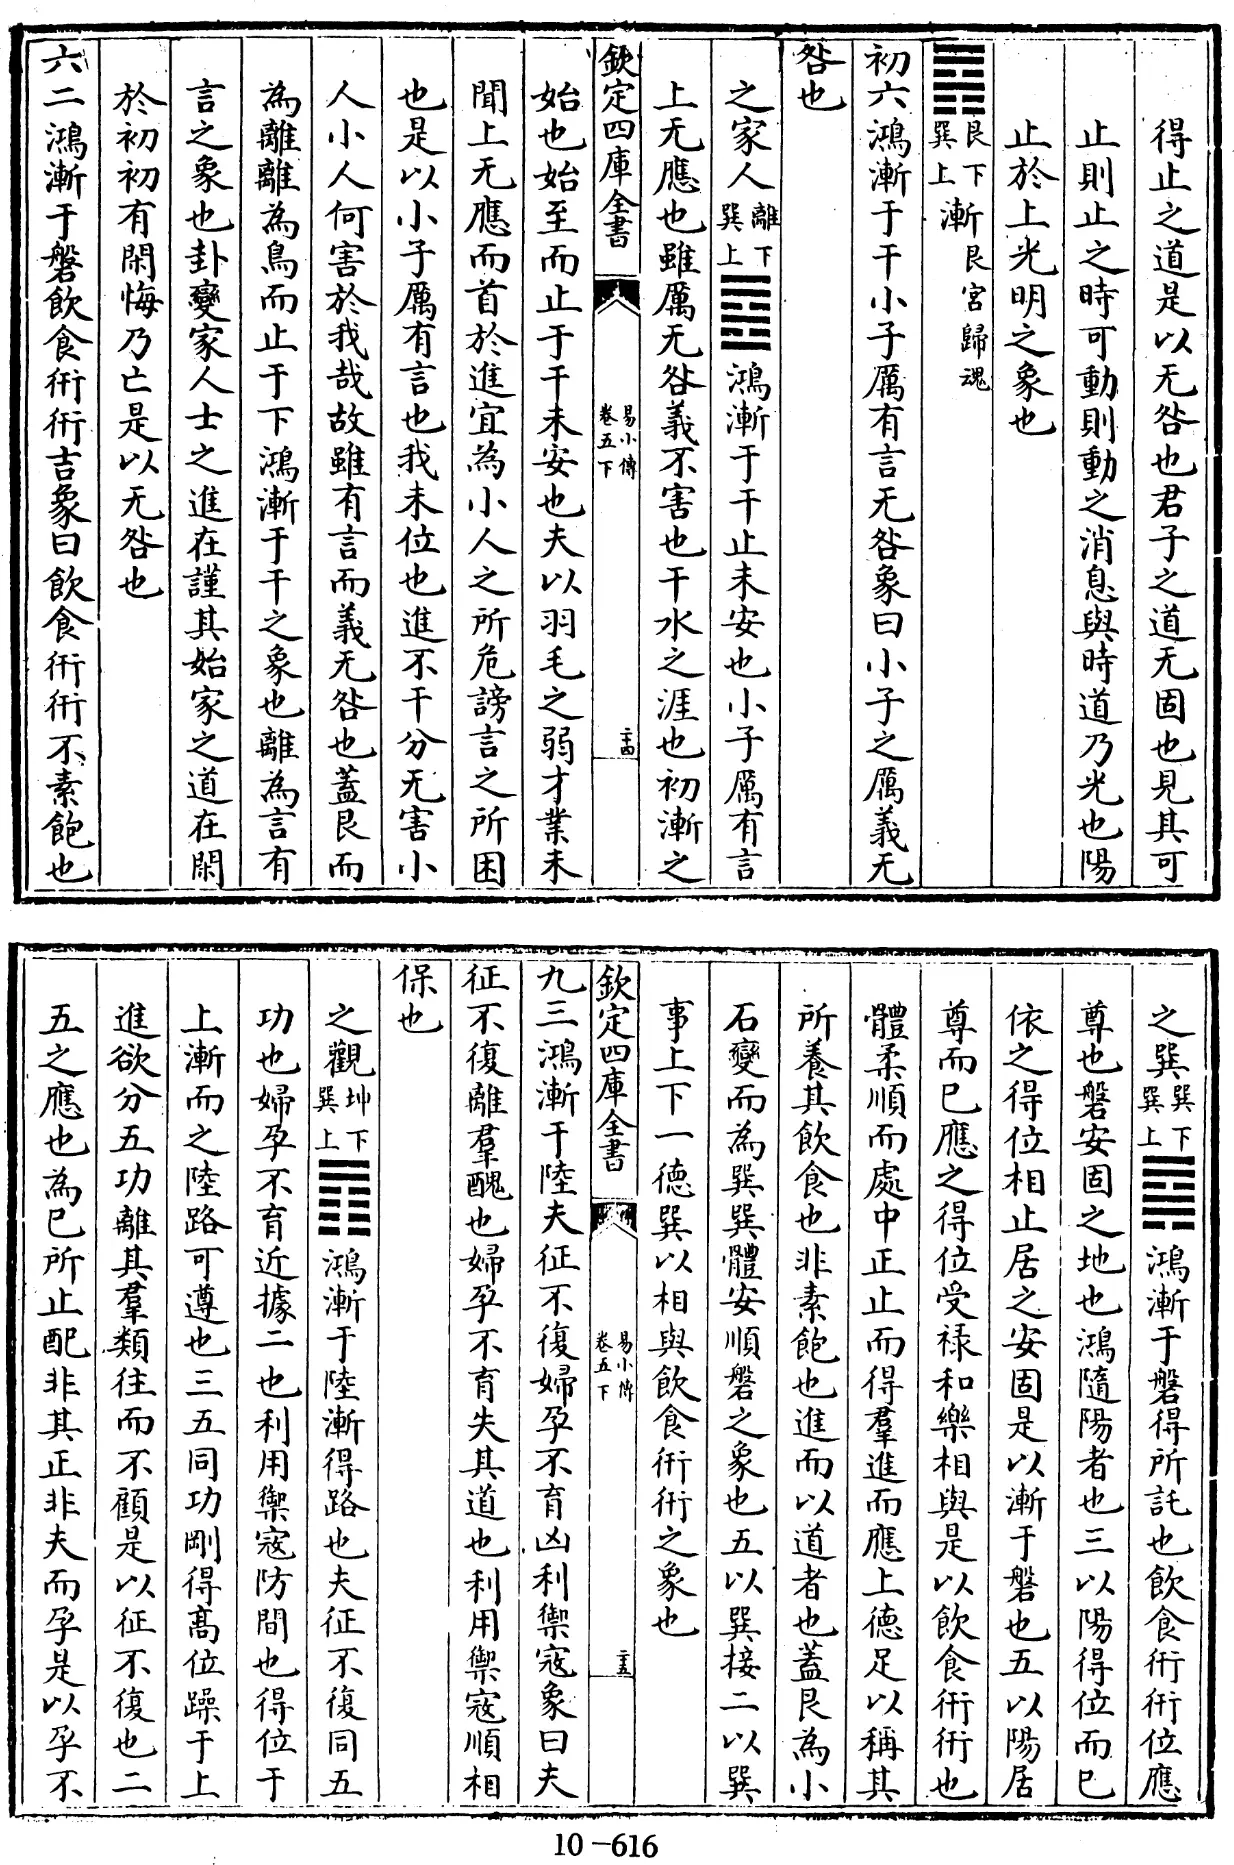 得止之道是以无咎也君子之道无固也見其可
止則止之時可動則動之消息與時道乃光也陽
止於上光明之象也
艮下巽上漸艮宮歸魂
初六鴻漸于干小子厲有言无咎象曰小子之厲義无
咎也
之家人離下巽上鴻漸于干止未安也小子厲有言
上无應也雖厲无咎義不害也干水之涯也初漸之
欽定四庫全書
易小傳卷五下
二十四
始也始至而止于干未安也夫以羽毛之弱才業未
聞上无應而首於進宜為小人之所危謗言之所困
也是以小子厲有言也我未位也進不干分无害小
人小人何害於我哉故雖有言而義无咎也蓋艮而
為離離為鳥而止于下鴻漸于干之象也離為言有
言之象也卦變家人士之進在謹其始家之道在閑
於初初有閑悔乃亡是以无咎也
六二鴻漸于磐飲食衎衎吉象曰飲食衎衎不素飽也
之巽巽下巽上鴻漸于磐得所託也飲食衎衎位應
尊也磐安固之地也鴻隨陽者也三以陽得位而已
依之得位相止居之安固是以漸于磐也五以陽居
尊而已應之得位受祿和樂相與是以飲食衎衎也
體柔順而處中正止而得羣進而應上德足以稱其
所養其飲食也非素飽也進而以道者也蓋艮為小
石變而為巽巽體安順磐之象也五以巽接二以巽
事上下一德巽以相與飲食衎衎之象也
欽定四庫全書
易小傳卷五下
二十五
九三鴻漸于陸夫征不復婦孕不育凶利禦寇象曰夫
征不復離羣醜也婦孕不育失其道也利用禦寇順相
保也
之觀坤下巽上鴻漸于陸漸得路也夫征不復同五
功也婦孕不育近據二也利用禦寇防間也得位于
上漸而之陸路可遵也三五同功剛得高位躁于上
進欲分五功離其羣類往而不顧是以征不復也二
五之應也為已所止配非其正非夫而孕是以孕不
10-616